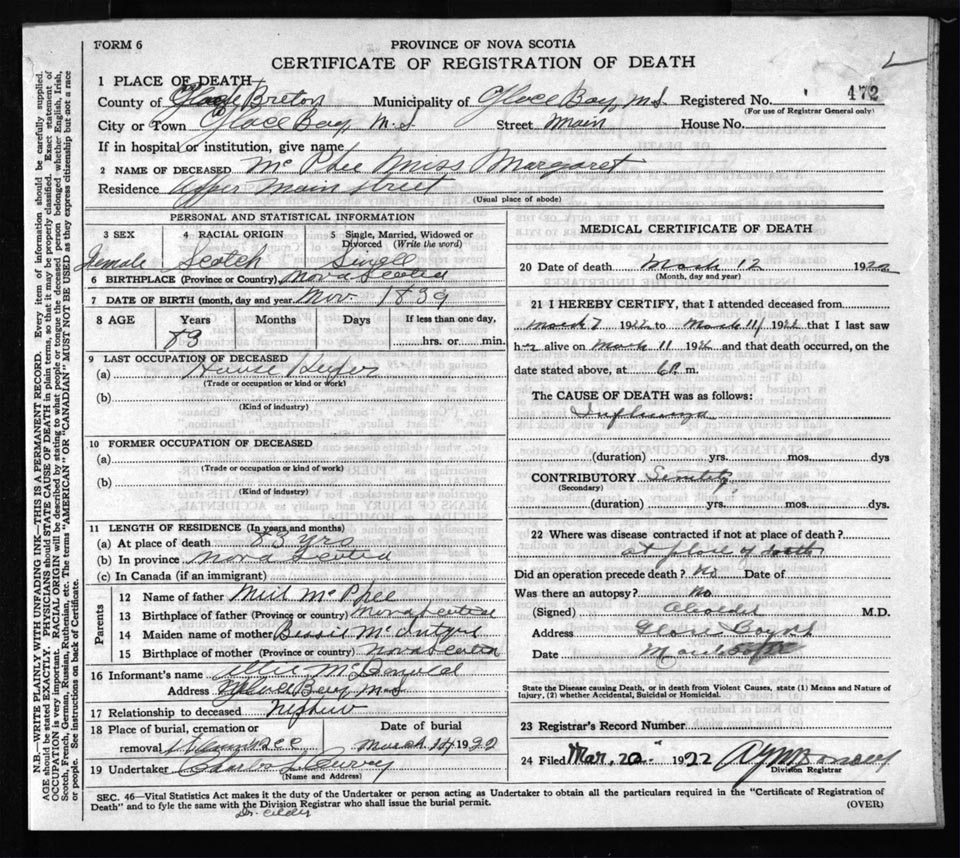 FORM 6
PROVINCE OF NOVA SCOTIA
CERTIFICATE OF REGISTRATION OF DEATH
1 PLACE OF DEATH
County of Cape Breton Municipality of Glace Bay, N.S. Registered No. 472
(For use of Registrar General only)
City or Town Glace Bay N.S. Street Main House No.
If in hospital or institution, give name
2 NAME OF DECEASED Mc Phee Miss Margaret
Residence Upper Main Street
(Usual place of abode)
PERSONAL AND STATISTICAL INFORMATION
3 SEX 4 RACIAL ORIGIN 5 Single, Married, Widowed or Divorced (Write the word)
Female Scotch Singell
6 BIRTHPLACE (Province or Country) Nova Scotia
7 DATE OF BIRTH (month, day and year) Nov. 1839
8 AGE Years Months Days If less than one day,
83 hrs. or min.
9 LAST OCCUPATION OF DECEASED
(a) House Keeper
(Trade or occupation or kind of work)
(b)
(Kind of industry)
10 FORMER OCCUPATION OF DECEASED
(a)
(Trade or occupation or kind of work)
(b)
(Kind of industry)
11 LENGTH OF RESIDENCE (In years and months)
(a) At place of death 83 yrs
(b) In province Nova Scotia
(c) In Canada (if an immigrant)
Parents
12 Name of father Neil Mc Phee
13 Birthplace of father (Province or country) Nova Scotia
14 Maiden name of mother Bessie McIntyre
15 Birthplace of mother (Province or country) Nova Scotia
16 Informant's name McDonald
Address Glace Bay N.S
17 Relationship to deceased Nephew
18 Place of burial, cremation or removal Date of burial
March 14 1922
19 Undertaker Charles Curry
(Name and Address)
MEDICAL CERTIFICATE OF DEATH
20 Date of death March 12 1922
(Month, day and year)
21 I HEREBY CERTIFY, that I attended deceased from
March 7 1922 to March 11 1922 that I last saw
her alive on March 11 1922 and that death occurred, on the
date stated above, at 6 P. m.
The CAUSE OF DEATH was as follows:
Influenza
(duration) yrs. mos. dys
CONTRIBUTORY Senility
(Secondary)
(duration) yrs. mos. dys.
22 Where was disease contracted if not at place of death?
at place of death
Did an operation precede death? No Date of
Was there an autopsy? No
(Signed) M.D.
Address Glace Bay
Date March
State the Disease causing Death, or in death from Violent Causes, state (1) Means and Nature of Injury, (2) whether Accidental, Suicidal or Homicidal.
23 Registrar's Record Number
24 Filed Mar. 20 1922
Division Registrar
SEC. 46—Vital Statistics Act makes it the duty of the Undertaker or person acting as Undertaker to obtain all the particulars required in the "Certificate of Registration of
Death" and to fyle the same with the Division Registrar who shall issue the burial permit. (OVER)
N.B.—WRITE PLAINLY WITH UNFADING INK—THIS IS A PERMANENT RECORD. Every item of information should be carefully supplied.
AGE should be stated EXACTLY. PHYSICIANS should STATE CAUSE OF DEATH in plain terms, so that it may be properly classified. Exact statement of
OCCUPATION is very important. RACIAL ORIGIN will be described by stating to what people or tongue the deceased person belonged, whether English, Irish,
Scotch, French, German, Russian, Ruthenian, etc. The terms "AMERICAN" OR "CANADIAN" MUST NOT BE USED as they express citizenship but not a race
or people. See instructions on back of Certificate.